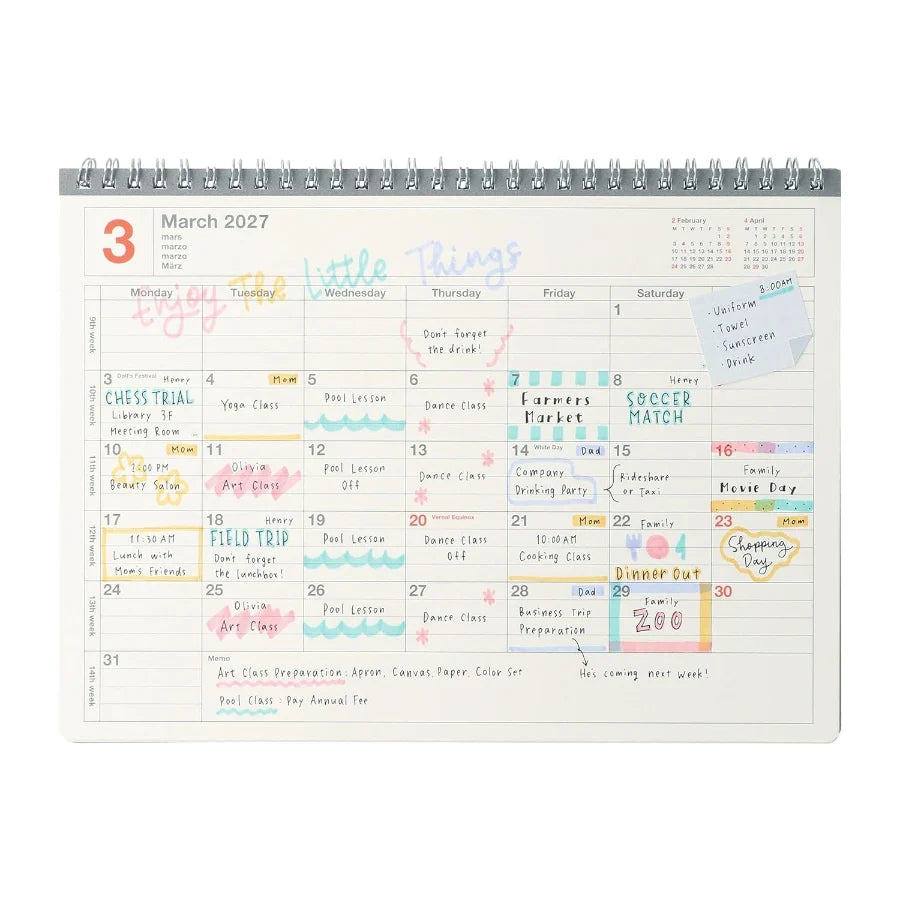 3
March 2027
mars
marzo
marzo
März
2 February
M T W T F S S
1 2
3 4 5 6 7 8 9
10 11 12 13 14 15 16
17 18 19 20 21 22 23
24 25 26 27 28
4 April
M T W T F S S
1 2 3 4 5 6
7 8 9 10 11 12 13
14 15 16 17 18 19 20
21 22 23 24 25 26 27
28 29 30
Enjoy The Little Things
Monday Tuesday Wednesday Thursday Friday Saturday
9th week
Don't forget
the drink!
1
8:00AM
· Uniform
· Towel
· Sunscreen
· Drink
10th week
3 Doll's Festival Henry
CHESS TRIAL
Library 3F
Meeting Room
4 Mom
Yoga Class
5
Pool Lesson
6
Dance Class
7
Farmers
Market
8 Henry
SOCCER
MATCH
11th week
10 Mom
2:00 PM
Beauty Salon
11
Olivia
Art Class
12
Pool Lesson
Off
13
Dance Class
14 White Day Dad
Company
Drinking Party
15
Rideshare
or Taxi
16
Family
Movie Day
12th week
17
11:30 AM
Lunch with
Mom's Friends
18 Henry
FIELD TRIP
Don't forget
the lunchbox!
19
Pool Lesson
20 Vernal Equinox
Dance Class
Off
21 Mom
10:00AM
Cooking Class
22 Family
Dinner Out
23 Mom
Shopping
Day
13th week
24
25
Olivia
Art Class
26
Pool Lesson
27
Dance Class
28 Dad
Business Trip
Preparation
29
Family
ZOO
30
14th week
31
Memo
Art Class Preparation : Apron, Canvas, Paper, Color Set
Pool Class : Pay Annual Fee
He's coming next week!